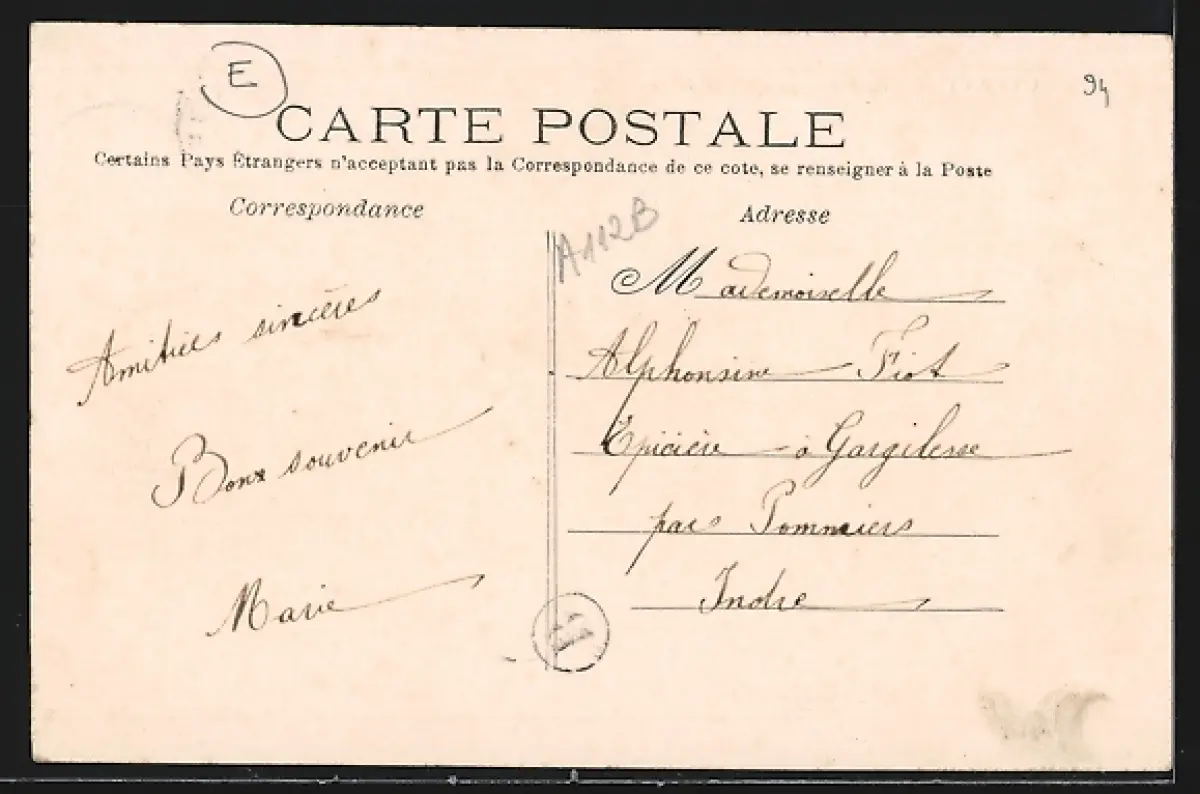 E
94
CARTE POSTALE
Certains Pays Étrangers n'acceptant pas la Correspondance de ce cote, se renseigner à la Poste
Correspondance
Amitiés sincères
Bons souvenir
Marie
A112B
Adresse
Mademoiselle
Alphonsine Fiot
Epicière à Gargilesse
par Pommiers
Indre